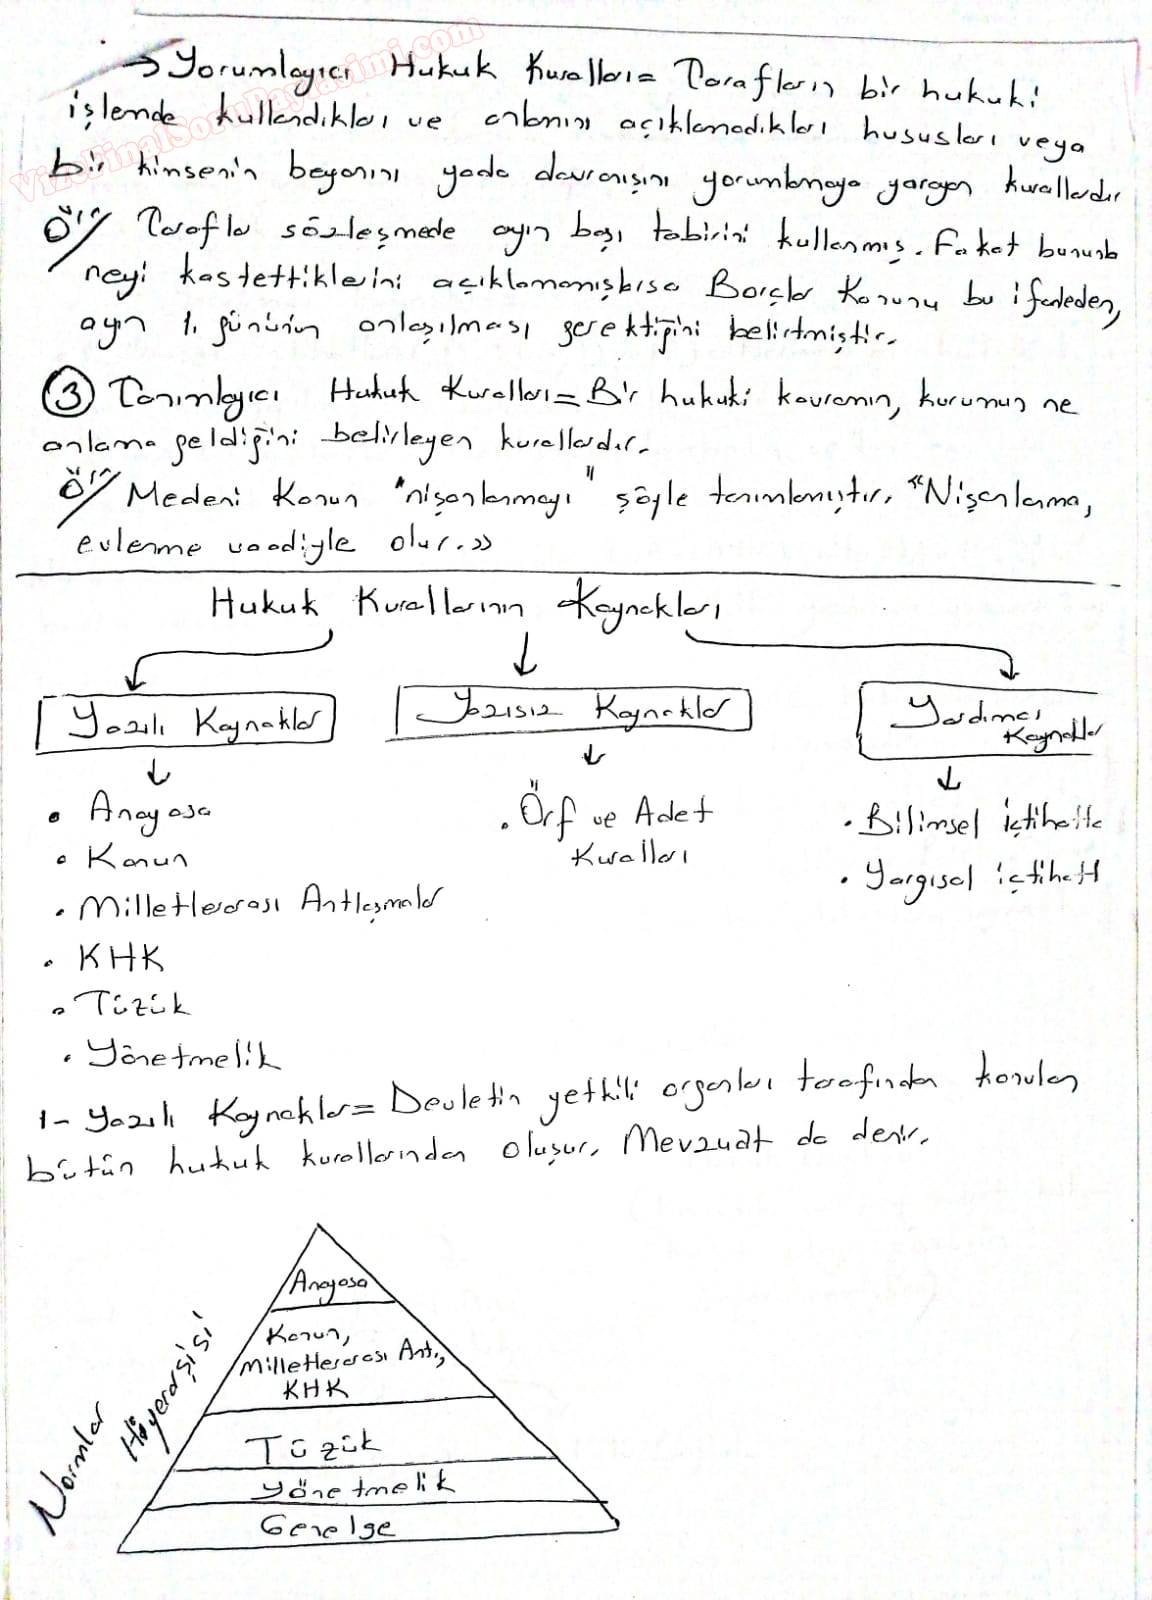 → Yorumlayıcı Hukuk Kuralları= Tarafların bir hukuki
işlemde kullandıkları ve anlamını açıklamadıkları hususları veya
bir kimsenin beyanını yada davranışını yorumlamaya yarayan kurallardır
Örn/ Taraflar sözleşmede ayın başı tabirini kullanmış. Fakat bununla
neyi kastettiklerini açıklamamışlarsa Borçlar Kanunu bu ifadeden,
ayın 1. gününün anlaşılması gerektiğini belirtmiştir.
3 Tanımlayıcı Hukuk Kuralları= Bir hukuki kavramın, kurumun ne
anlama geldiğini belirleyen kurallardır.
Örn/ Medeni Kanun "nişanlanmayı" şöyle tanımlamıştır. "Nişanlanma,
evlenme vaadiyle olur.»
Hukuk Kurallarının Kaynakları
Yazılı Kaynaklar
Yazısız Kaynaklar
Yardımcı
Kaynaklar
• Anayasa
• Kanun
• Milletlerarası Antlaşmalar
• KHK
• Tüzük
• Yönetmelik
• Örf ve Adet
Kuralları
• Bilimsel İçtihatla
• Yargısal içtihatl
1- Yazılı Kaynaklar= Devletin yetkili organları tarafından konulan
bütün hukuk kurallarından oluşur. Mevzuat da denir.
Normlar Hiyerarşisi
Anayasa
Kanun,
Milletlerarası Ant.,
KHK
Tüzük
Yönetmelik
Genelge
VizeFinalSoruPaylasimi.com